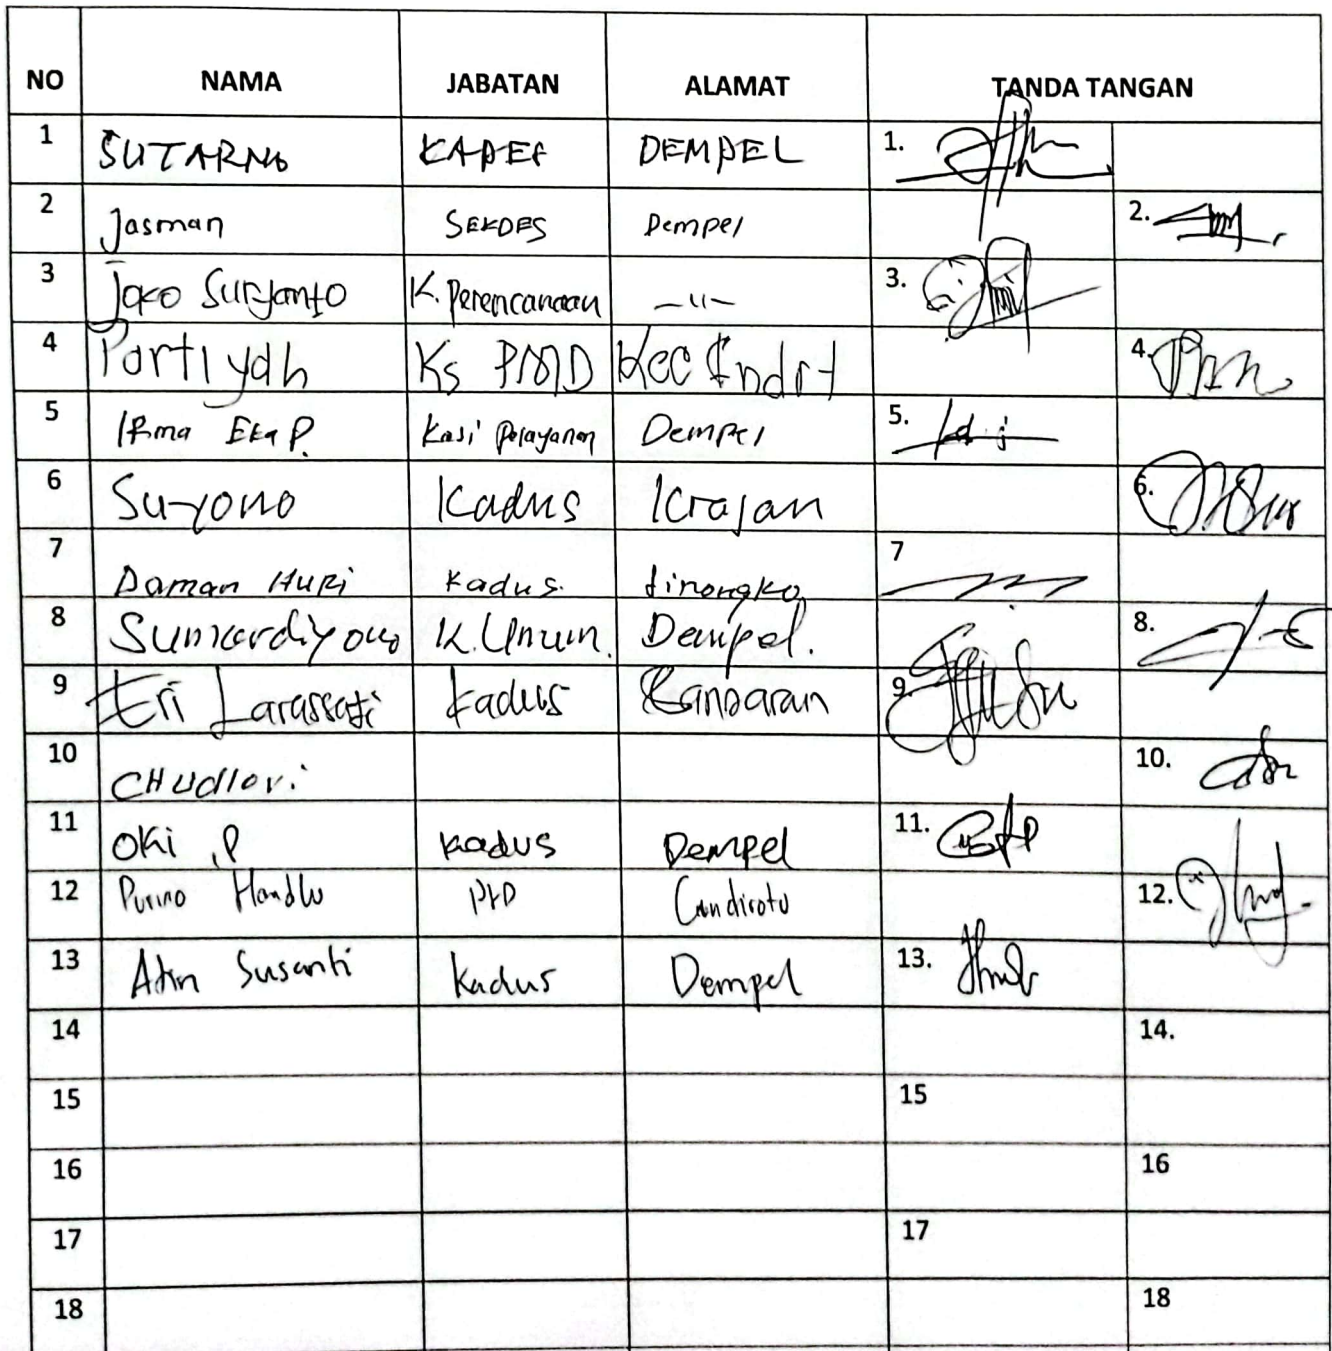 NO NAMA JABATAN ALAMAT TANDA TANGAN
1 SUTARNO KADES DEMPEL 1.
2 Jasman SEKDES Dempel 2.
3 Joko Suryanto K. Perencanaan —"— 3.
4 Partiyah Ks PMD Kec 4.
5 IRma Eka P. Kasi Pelayanan Dempel 5.
6 Suyono Kadus Krajan 6.
7 Daman HuRi Kadus. 7
8 Sumardiyono K. Umum. Dempel. 8.
9 Eri Larassati Kadus 9.
10 10.
11 Oki .P Kadus Dempel 11.
12 Candiroto 12.
13 Susanti Kadus Dempel 13.
14 14.
15 15
16 16
17 17
18 18